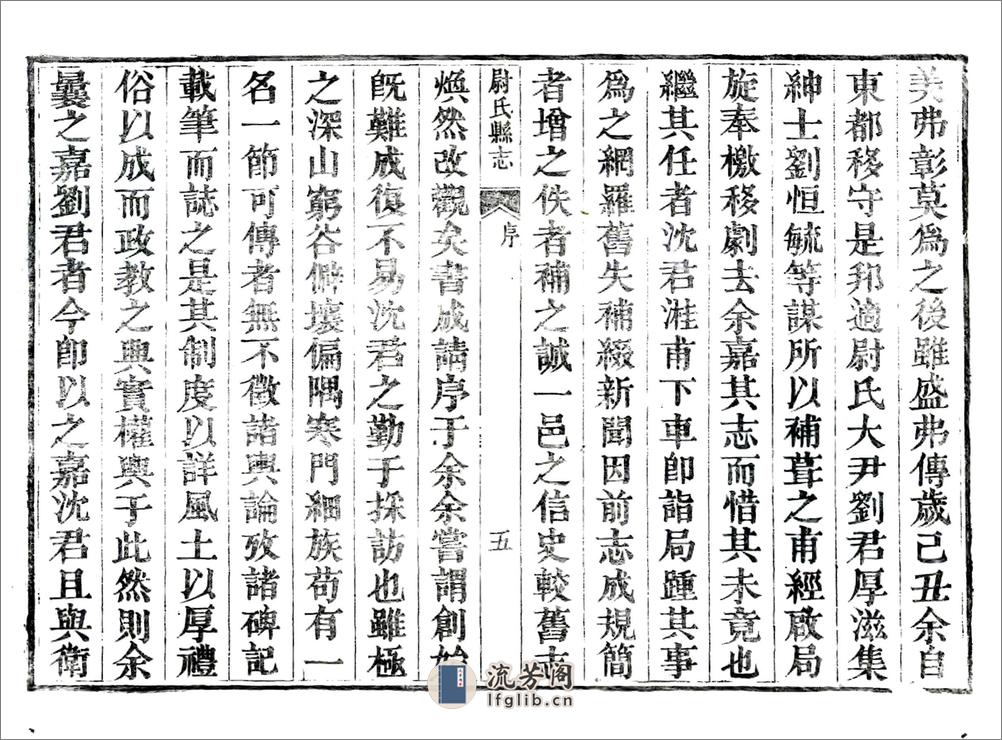 美弗彰莫爲之後雖盛弗傳歲己丑余自
東都移守是邦適尉氏大尹劉君厚滋集
紳士劉恒毓等謀所以補葺之甫經啟局
旋奉檄移劇去余嘉其志而惜其未竟也
繼其任者沈君溎甫下車卽詣局踵其事
爲之網羅舊失補綴新聞因前志成規簡
者增之佚者補之誠一邑之信史較舊志
尉氏縣志
序
五
煥然改觀矣書成請序于余余嘗謂創始
旣難成復不易沈君之勤于採訪也雖極
之深山窮谷僻壤偏隅寒門細族苟有一
名一節可傳者無不徵諸輿論攷諸碑記
載筆而誌之是其制度以詳風土以厚禮
俗以成而政教之興實權輿于此然則余
曩之嘉劉君者今卽以之嘉沈君且與衛
流芳阁
lfglib.cn